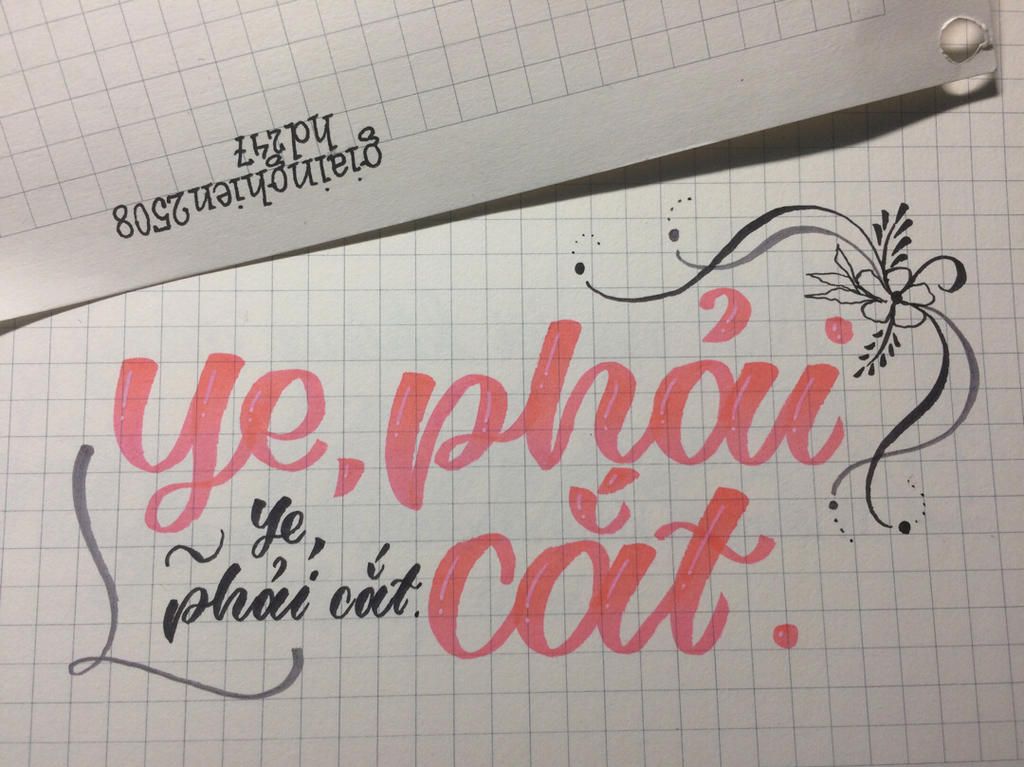 giainghien2508
hd247
Ye, phải
cắt.
Ye,
phải cắt.